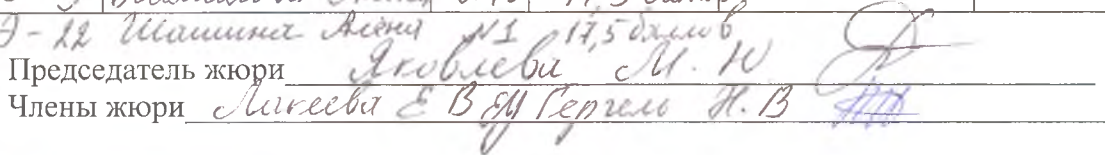 Э-22 Шашина Алёна №1 17,5 баллов
Председатель жюри Яковлева М. Ю
Члены жюри Лакеева Е В Гергель Н. В